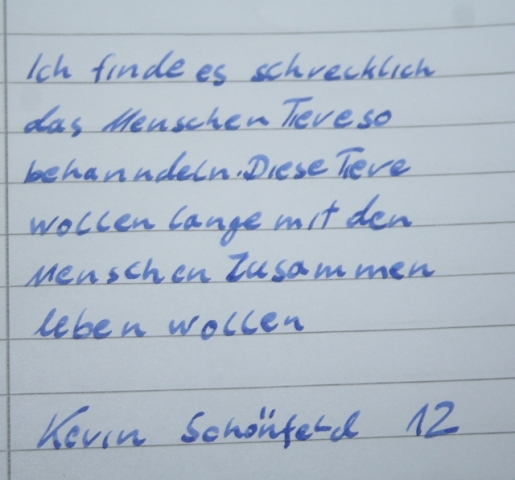 Ich finde es schrecklich
das Menschen Tiere so
behanndeln. Diese Tiere
wollen lange mit den
Menschen Zusammen
leben wollen
Kevin Schönfeld 12